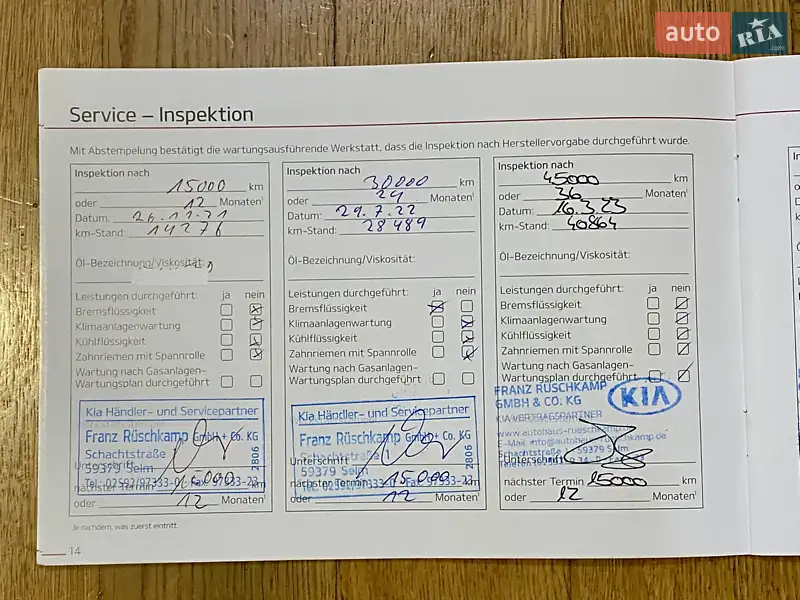 auto RIA .com
Service – Inspektion
Mit Abstempelung bestätigt die wartungsausführende Werkstatt, dass die Inspektion nach Herstellervorgabe durchgeführt wurde.
Inspektion nach
15000 km
oder 12 Monaten¹
Datum: 26.11.21
km-Stand: 14276
Öl-Bezeichnung/Viskosität:
Leistungen durchgeführt: ja nein
Bremsflüssigkeit
Klimaanlagenwartung
Kühlflüssigkeit
Zahnriemen mit Spannrolle
Wartung nach Gasanlagen-
Wartungsplan durchgeführt
Kia Händler- und Servicepartner
Franz Rüschkamp GmbH + Co. KG
Schachtstraße
59379 Selm
Unterschrift
2806
nächster Termin 15000 km
oder 12 Monaten¹
Inspektion nach
30000 km
oder 24 Monaten¹
Datum: 29.7.22
km-Stand: 28489
Öl-Bezeichnung/Viskosität:
Leistungen durchgeführt: ja nein
Bremsflüssigkeit
Klimaanlagenwartung
Kühlflüssigkeit
Zahnriemen mit Spannrolle
Wartung nach Gasanlagen-
Wartungsplan durchgeführt
Kia Händler- und Servicepartner
Franz Rüschkamp GmbH + Co. KG
Schachtstraße 1
59379 Selm
Unterschrift
2806
nächster Termin 15000 km
oder 12 Monaten¹
Inspektion nach
45000 km
oder 36 Monaten¹
Datum: 16.3.23
km-Stand: 40864
Öl-Bezeichnung/Viskosität:
Leistungen durchgeführt: ja nein
Bremsflüssigkeit
Klimaanlagenwartung
Kühlflüssigkeit
Zahnriemen mit Spannrolle
Wartung nach Gasanlagen-
Wartungsplan durchgeführt
FRANZ RÜSCHKAMP
GMBH & CO. KG
KIA
KIA VERTRAGSPARTNER
Schachtstraße 59379 Selm
Unterschrift
nächster Termin 15000 km
oder 12 Monaten¹
¹Je nachdem, was zuerst eintritt.
14